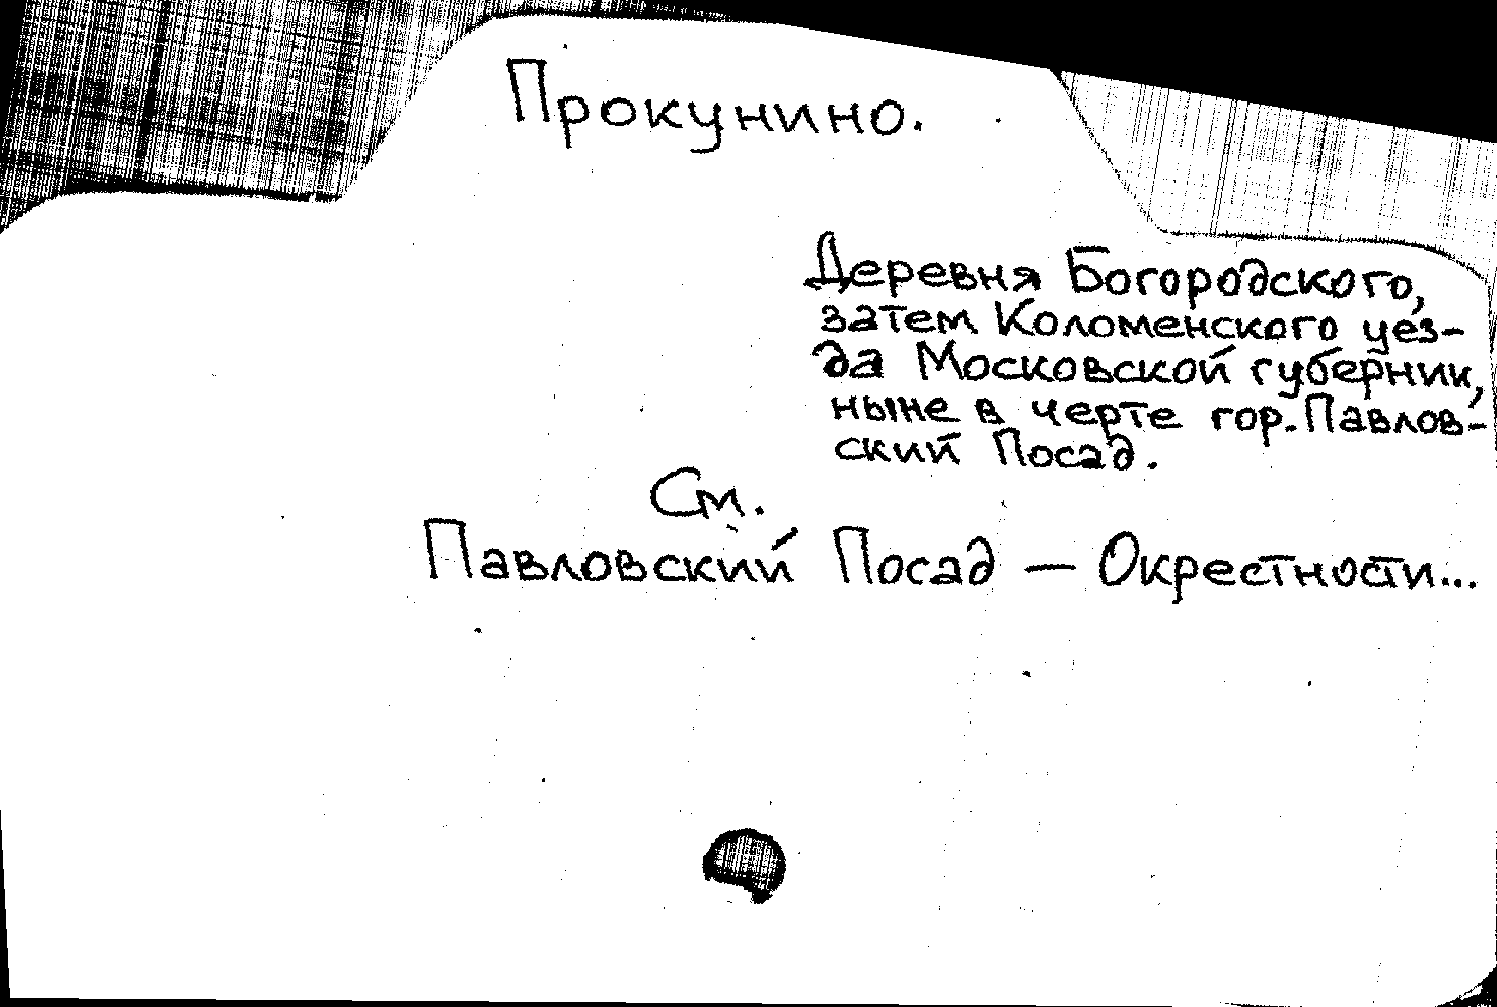 Прокунино.
Деревня Богородского,
затем Коломенского уез-
да Московской губернии,
ныне в черте гор. Павлов-
ский Посад.
См.
Павловский Посад — Окрестности...